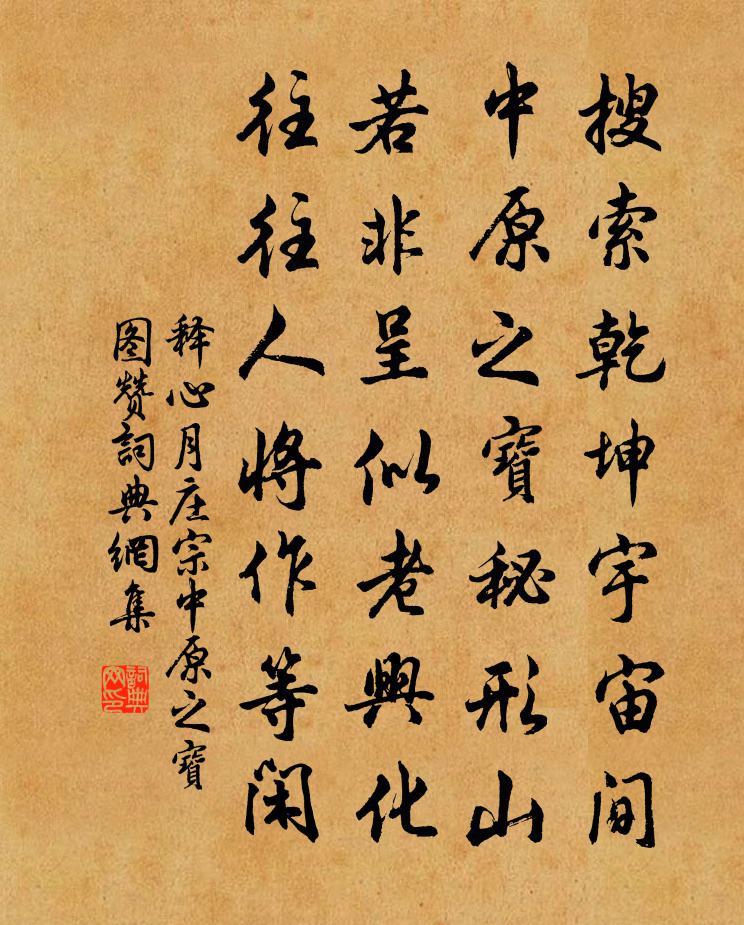 搜索乾坤宇宙间
中原之寶秘形山
若非呈似老興化
往往人将作等闲
释心月庄宗中原之寶
图赞詞典網集
詞典网印